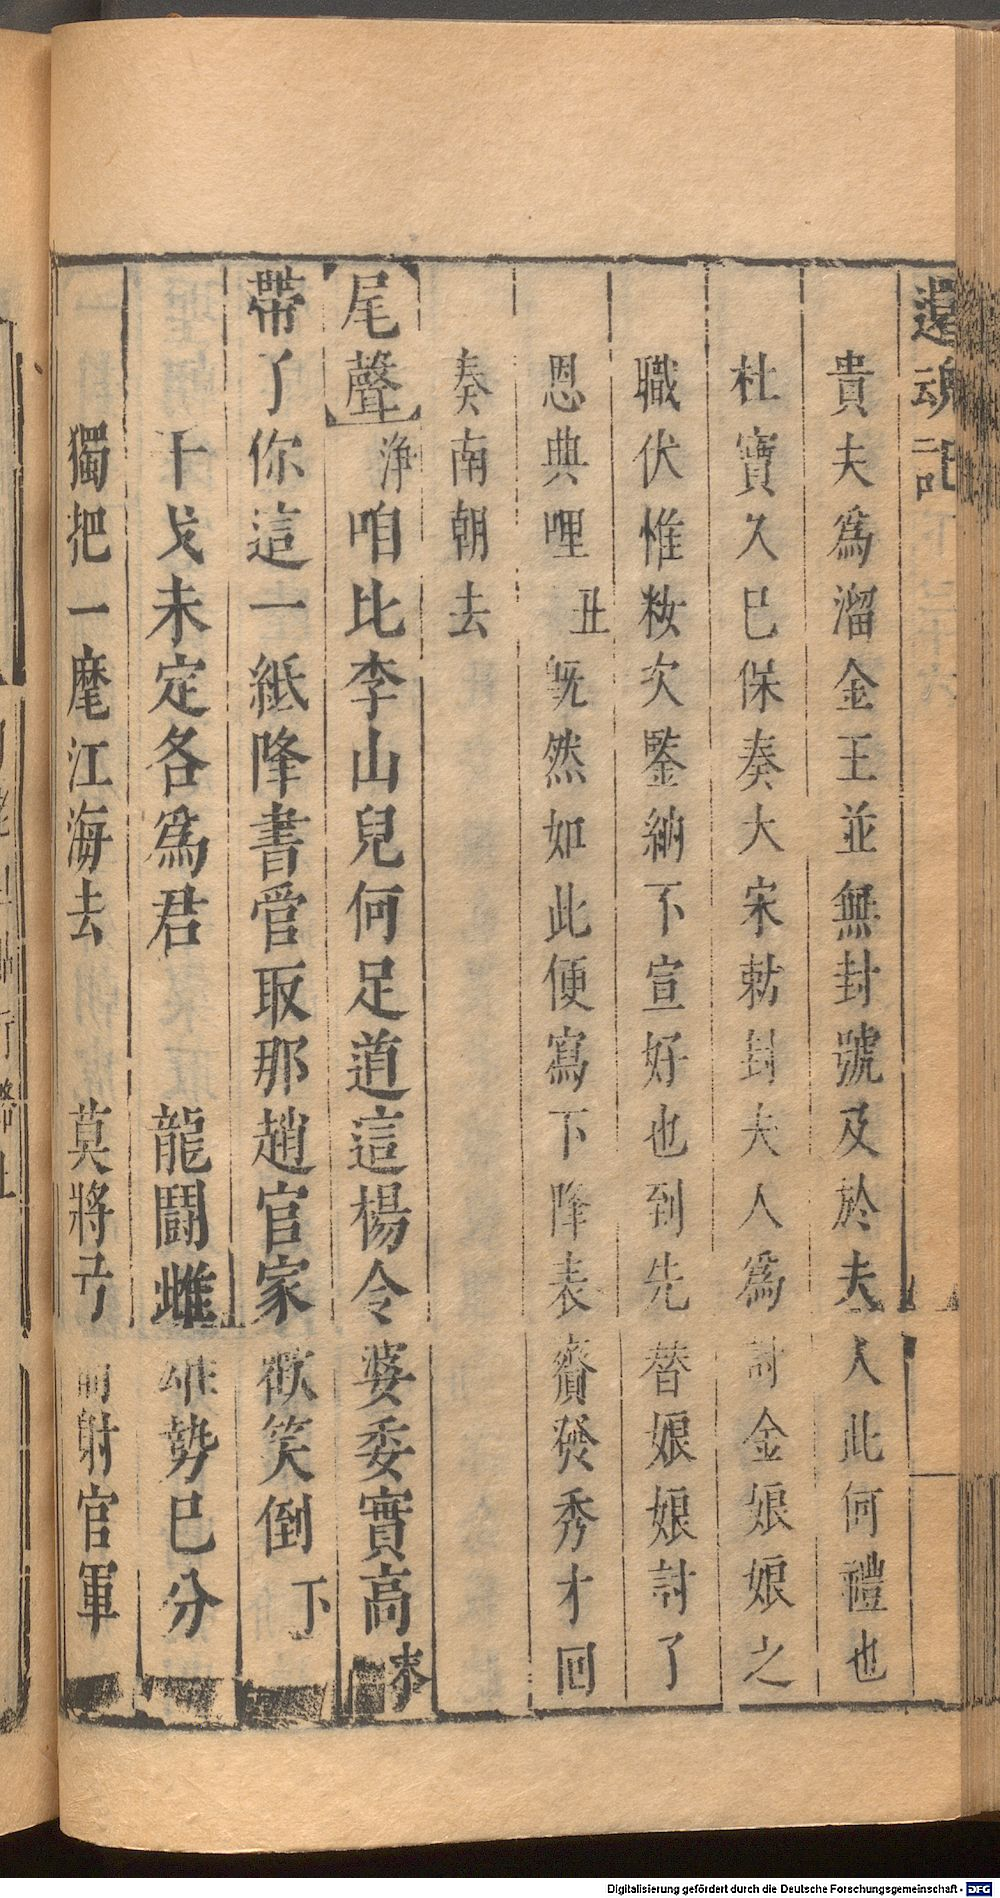 還魂記
貴夫爲溜金王並無封號及於夫人此何禮也
杜寶久已保奏大宋勅封夫人爲討金娘娘之
職伏惟妝次鑒納不宣好也到先替娘娘討了
恩典哩丑旣然如此便寫下降表齎發秀才回
奏南朝去
尾聲淨咱比李山兒何足道這楊令婆委實高
帶了你這一紙降書管取那趙官家歡笑倒下
干戈未定各爲君 龍鬪雌雄勢已分
獨把一麾江海去 莫將弓箭射官軍
Digitalisierung gefördert durch die Deutsche Forschungsgemeinschaft - DFG